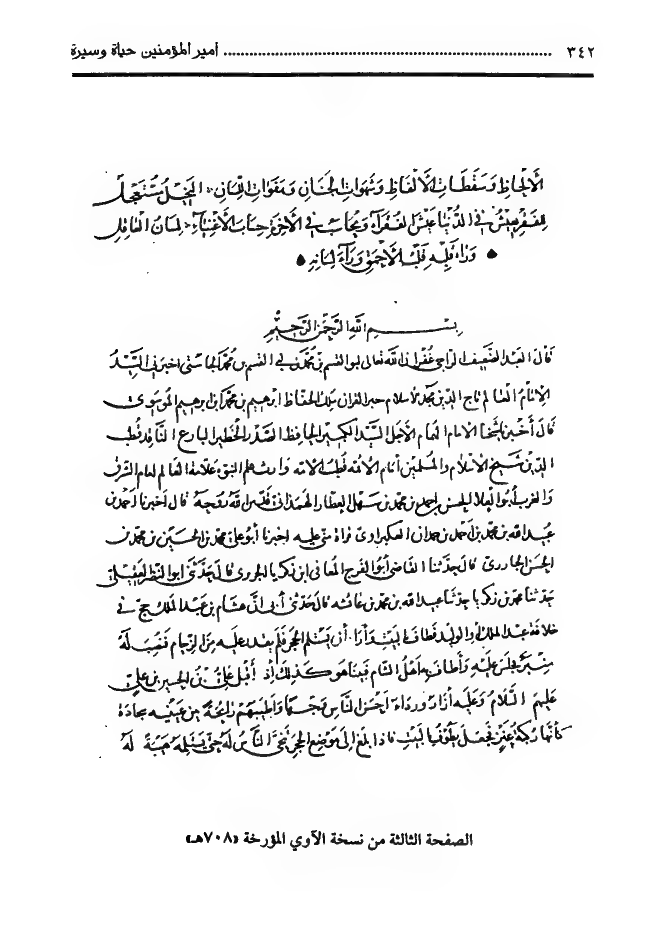 ٣٤٢ ........ أمير المؤمنين حياة وسيرة
الألحاظ وسقطات الألفاظ وشهوات الجنان وهفوات اللسان البخيل مستعجل
للفقر يعيش في الدنيا عيش الفقراء ويحاسب في الآخرة حساب الأغنياء لسان العاقل
وراء قلبه قلب الأحمق وراء لسانه
بسم الله الرحمن الرحيم
قال العبد الضعيف الراجي غفران الله تعالى ابو القسم بن محمد بن ابي القسم بن محمد اخبرني السيد
الامام العالم تاج الدين الاسلام ملك الحفاظ ابرهيم بن محمد بن ابرهيم الموسوي
قال أخبرني شيخنا الامام العالم الأجل السيد الكبير الحافظ الصدر الخطير البارع الناقد قطب
الدين شيخ الاسلام والمسلمين امام الائمة وارث علم النبي علامة العالم امام الشرق
والغرب أبو العلاء الحسن بن احمد بن محمد بن سهل العطار الهمداني قال أخبرنا احمد بن
عبد الله بن محمد بن أحمد بن حمدان العكبراوي قراة مني عليه اخبرنا أبو علي محمد بن الحسين بن محمد بن
الحسن الجازري قال حدثنا القاضي أبو الفرج المعافى ابن زكريا الجريري قال حدثني ابو النضر العقيلي
حدثنا محمد بن زكريا حدثنا عبد الله بن محمد بن عائشة قال حدثني أبي ان هشام بن عبد الملك حج في
خلافة عبد الملك أو الوليد فطاف بالبيت وأراد أن يستلم الحجر فلم يقدر عليه من الزحام فنصب له
منبر فجلس عليه وأطاف به اهل الشام فبينا هو كذلك إذ أقبل علي بن الحسين بن علي
عليهم السلام وعليه إزار ورداء أحسن الناس وجها وأطيبهم رائحة بين عينيه سجادة
كأنها ركبة عنز فجعل يطوف بالبيت فاذا بلغ إلى موضع الحجر تنحى الناس له حتى يستلمه هيبة له
الصفحة الثالثة من نسخة الآوي المؤرخة «٧٠٨هـ»